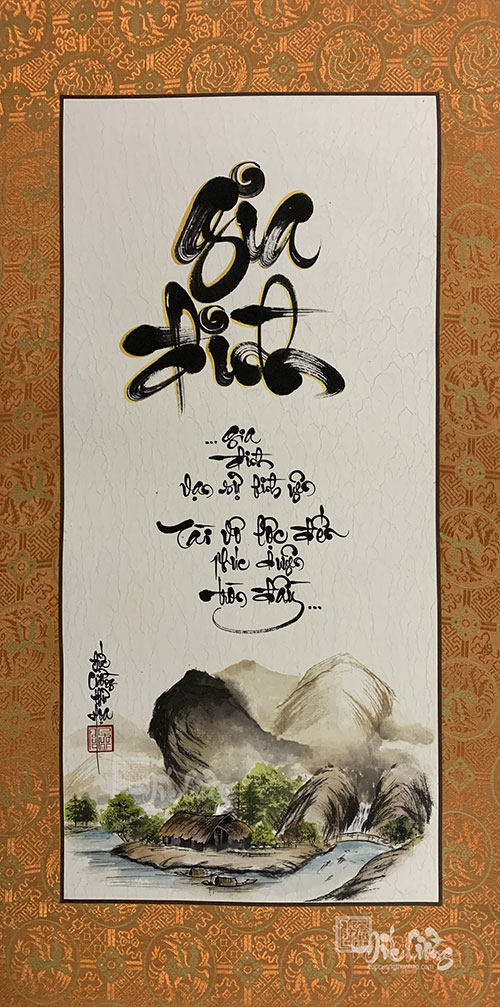 Gia
Đình
... Gia
Đình
Vạn sự bình yên
Tài vô lộc đến
Phúc duyên
tròn đầy...